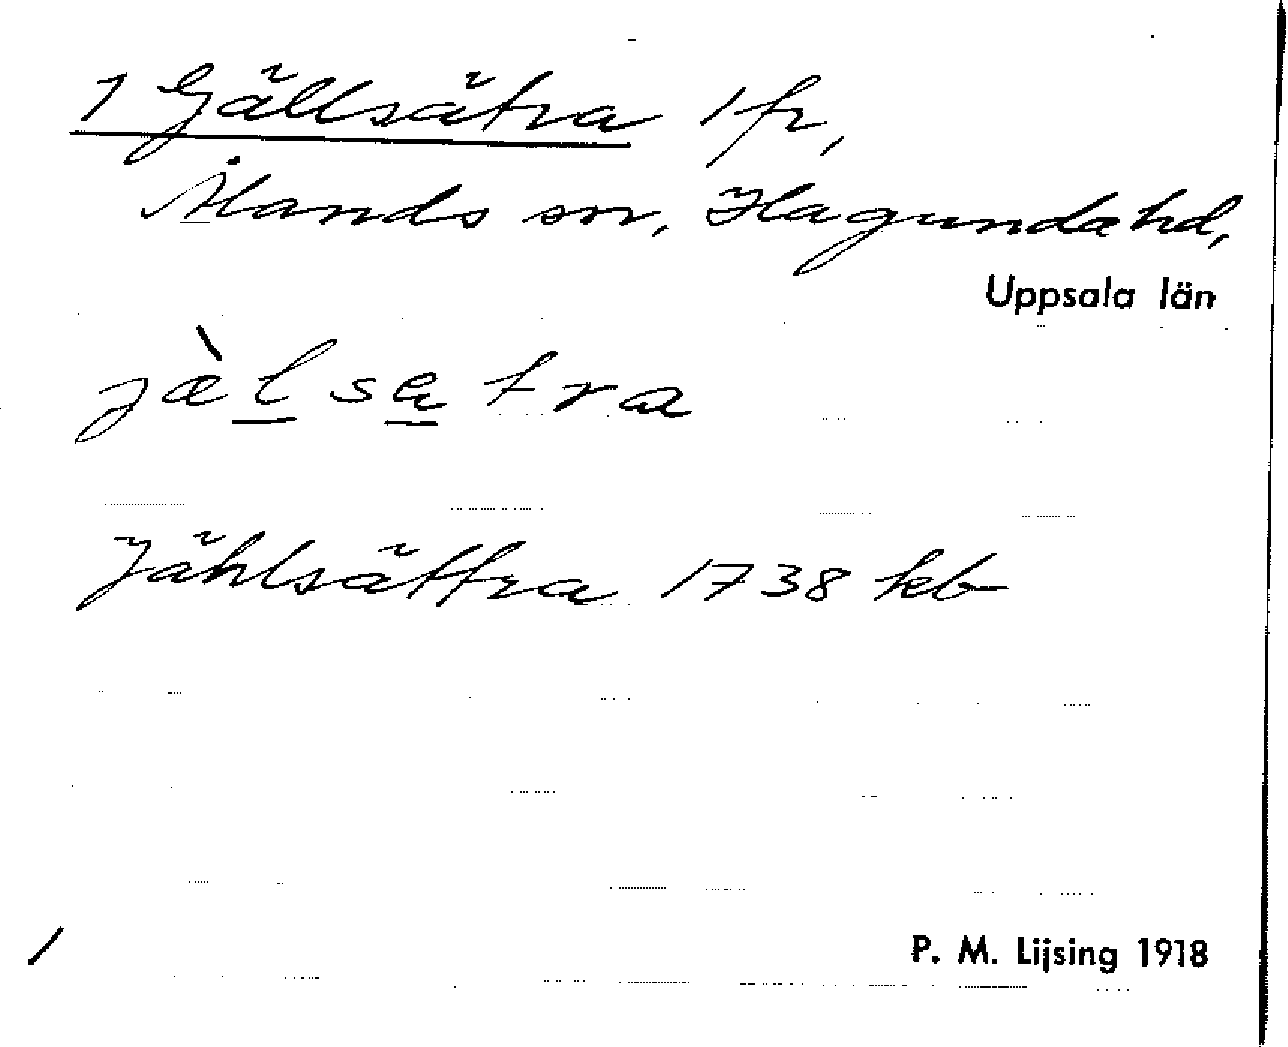 1 Gällsätra 1 fr,
Ålands sn, Hagunda hd,
Uppsala län
jæ̀l̲sa̲tra
Jählsättra 1738 kb
P. M. Lijsing 1918